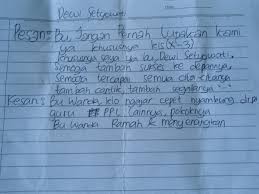 Dewi Setyowati
Pesan: Bu Jangan Pernah Lupakan kami
ya khususnya kls (X-3)
khususnya saya ya bu Dewi Setyowati.
semoga tambah sukses ke depannya,
Semoga tercapai semua cita-citanya
tambah cantik, tambah segalanya
Kesan: Bu Wanda, klo ngajar cepet nyambung drpd
guru PPL lainnya, pokoknya
Bu Wanda Ramah & menyenangkan